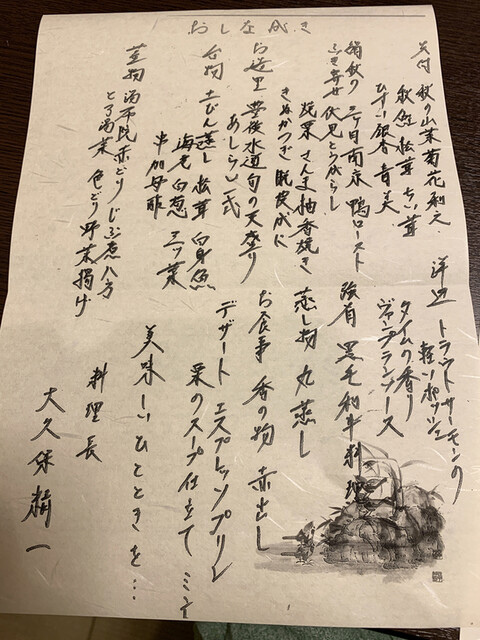 おしながき
先付 秋の山菜菊花和え
秋鮭 松茸 占地茸
ひすい銀杏 青美
前秋の 三丁目南京 鴨ロースト
ふき寄せ 伏見とうがらし
焼栗 さんま柚香焼き
きぬかつぎ 脱皮成に
お造里 豊後水道旬の天盛り
あしらい一式
台物 土びん蒸し 松茸 白身魚
海老 白葱 三ツ葉
芋物 湯布院赤どりじぶ煮 八方
とろ湯葉 色どり野菜揚げ
洋皿 トラウトサーモンの
軽いポッシェ
タイムの香り
ヴァンブランソース
強肴 黒毛和牛料理
蒸し物 丸蒸し
お食事 香の物 赤出し
デザート エスプレッソプリン
栗のスープ仕立て ミント
美味しいひとときを…
料理長
大久保精一